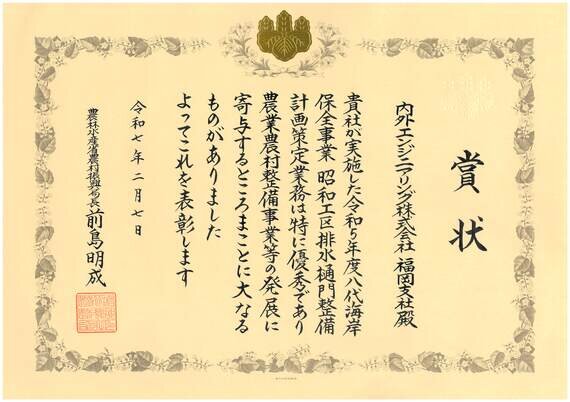 賞状
内外エンジニアリング株式会社 福岡支社殿
貴社が実施した令和5年度八代海岸
保全事業 昭和工区排水樋門整備
計画策定業務は特に優秀であり
農業農村整備事業等の発展に
寄与するところまことに大なる
ものがありました
よってこれを表彰します
令和七年二月七日
農林水産省農村振興局長 前島明成